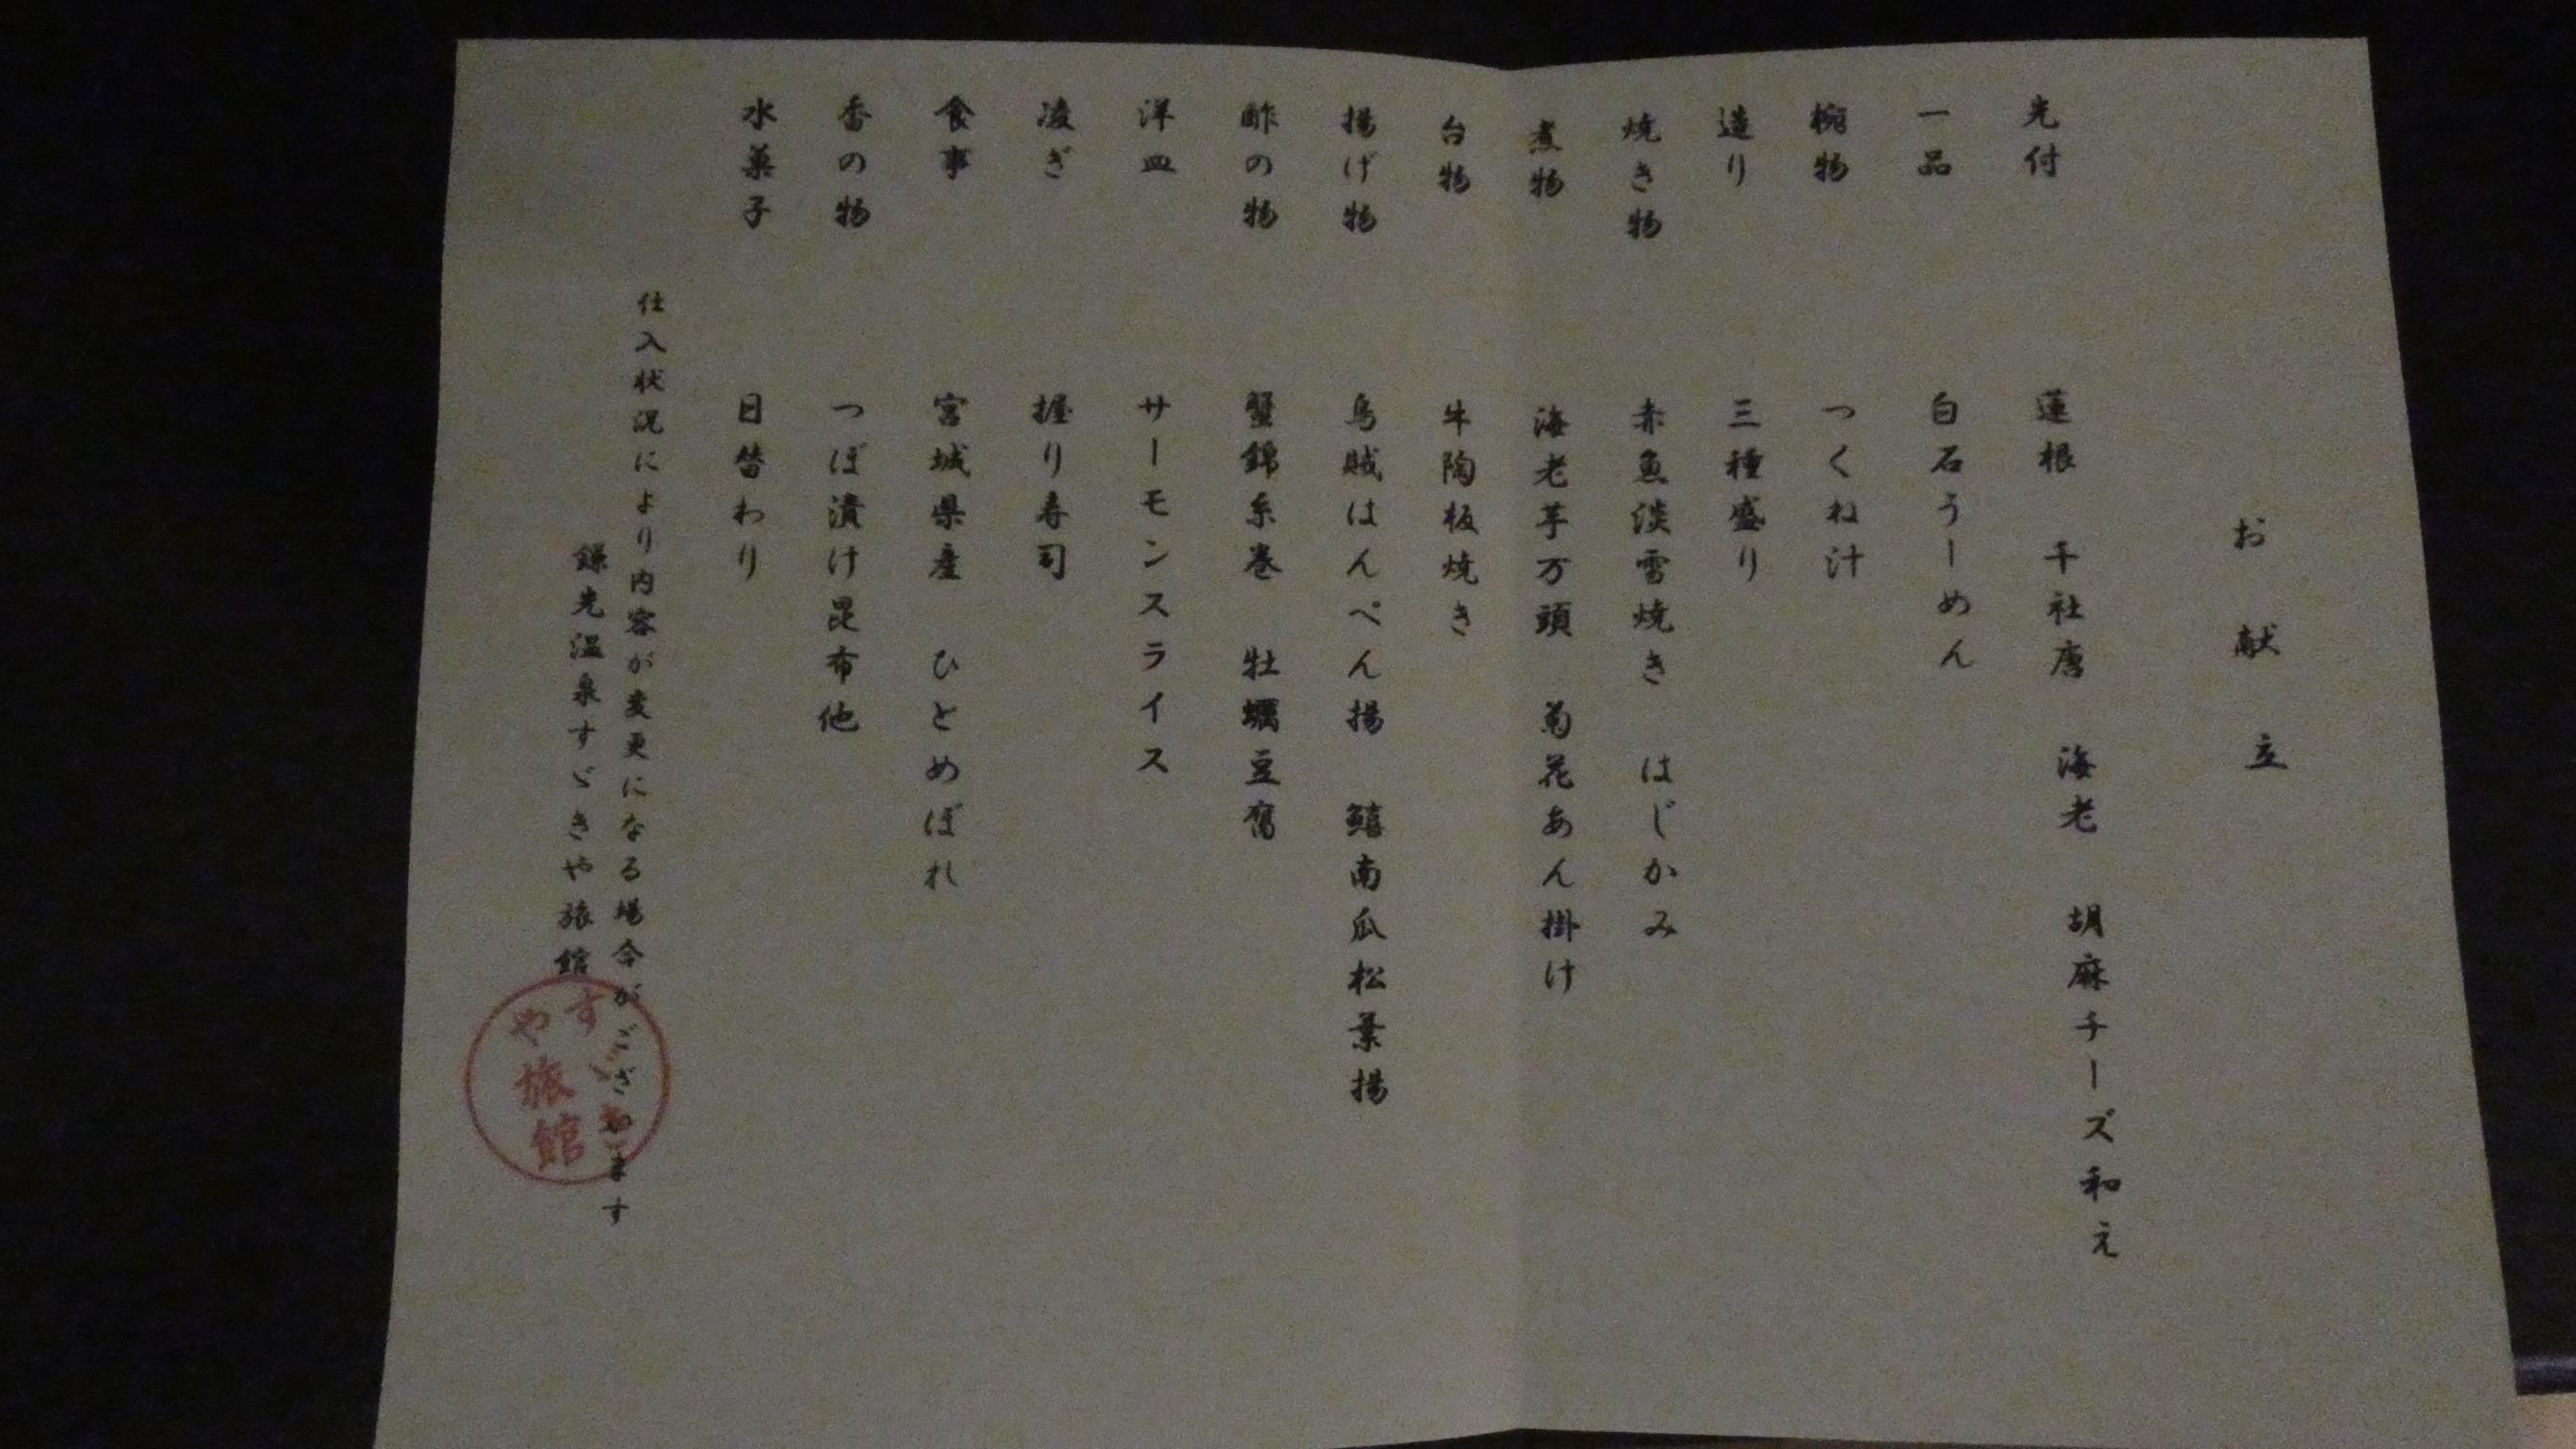 お献立
先付　蓮根　千社唐　海老　胡麻チーズ和え
一品　白石うーめん
椀物　つくね汁
造り　三種盛り
焼き物　赤魚淡雪焼き　はじかみ
煮物　海老芋万頭　菊花あん掛け
台物　牛陶板焼き
揚げ物　烏賊はんぺん揚　鱚南瓜松葉揚
酢の物　蟹錦糸巻　牡蠣豆腐
洋皿　サーモンスライス
凌ぎ　握り寿司
食事　宮城県産　ひとめぼれ
香の物　つぼ漬け昆布他
水菓子　日替わり
仕入状況により内容が変更になる場合がございます
鎌先温泉すゞきや旅館
すゞき
や旅館